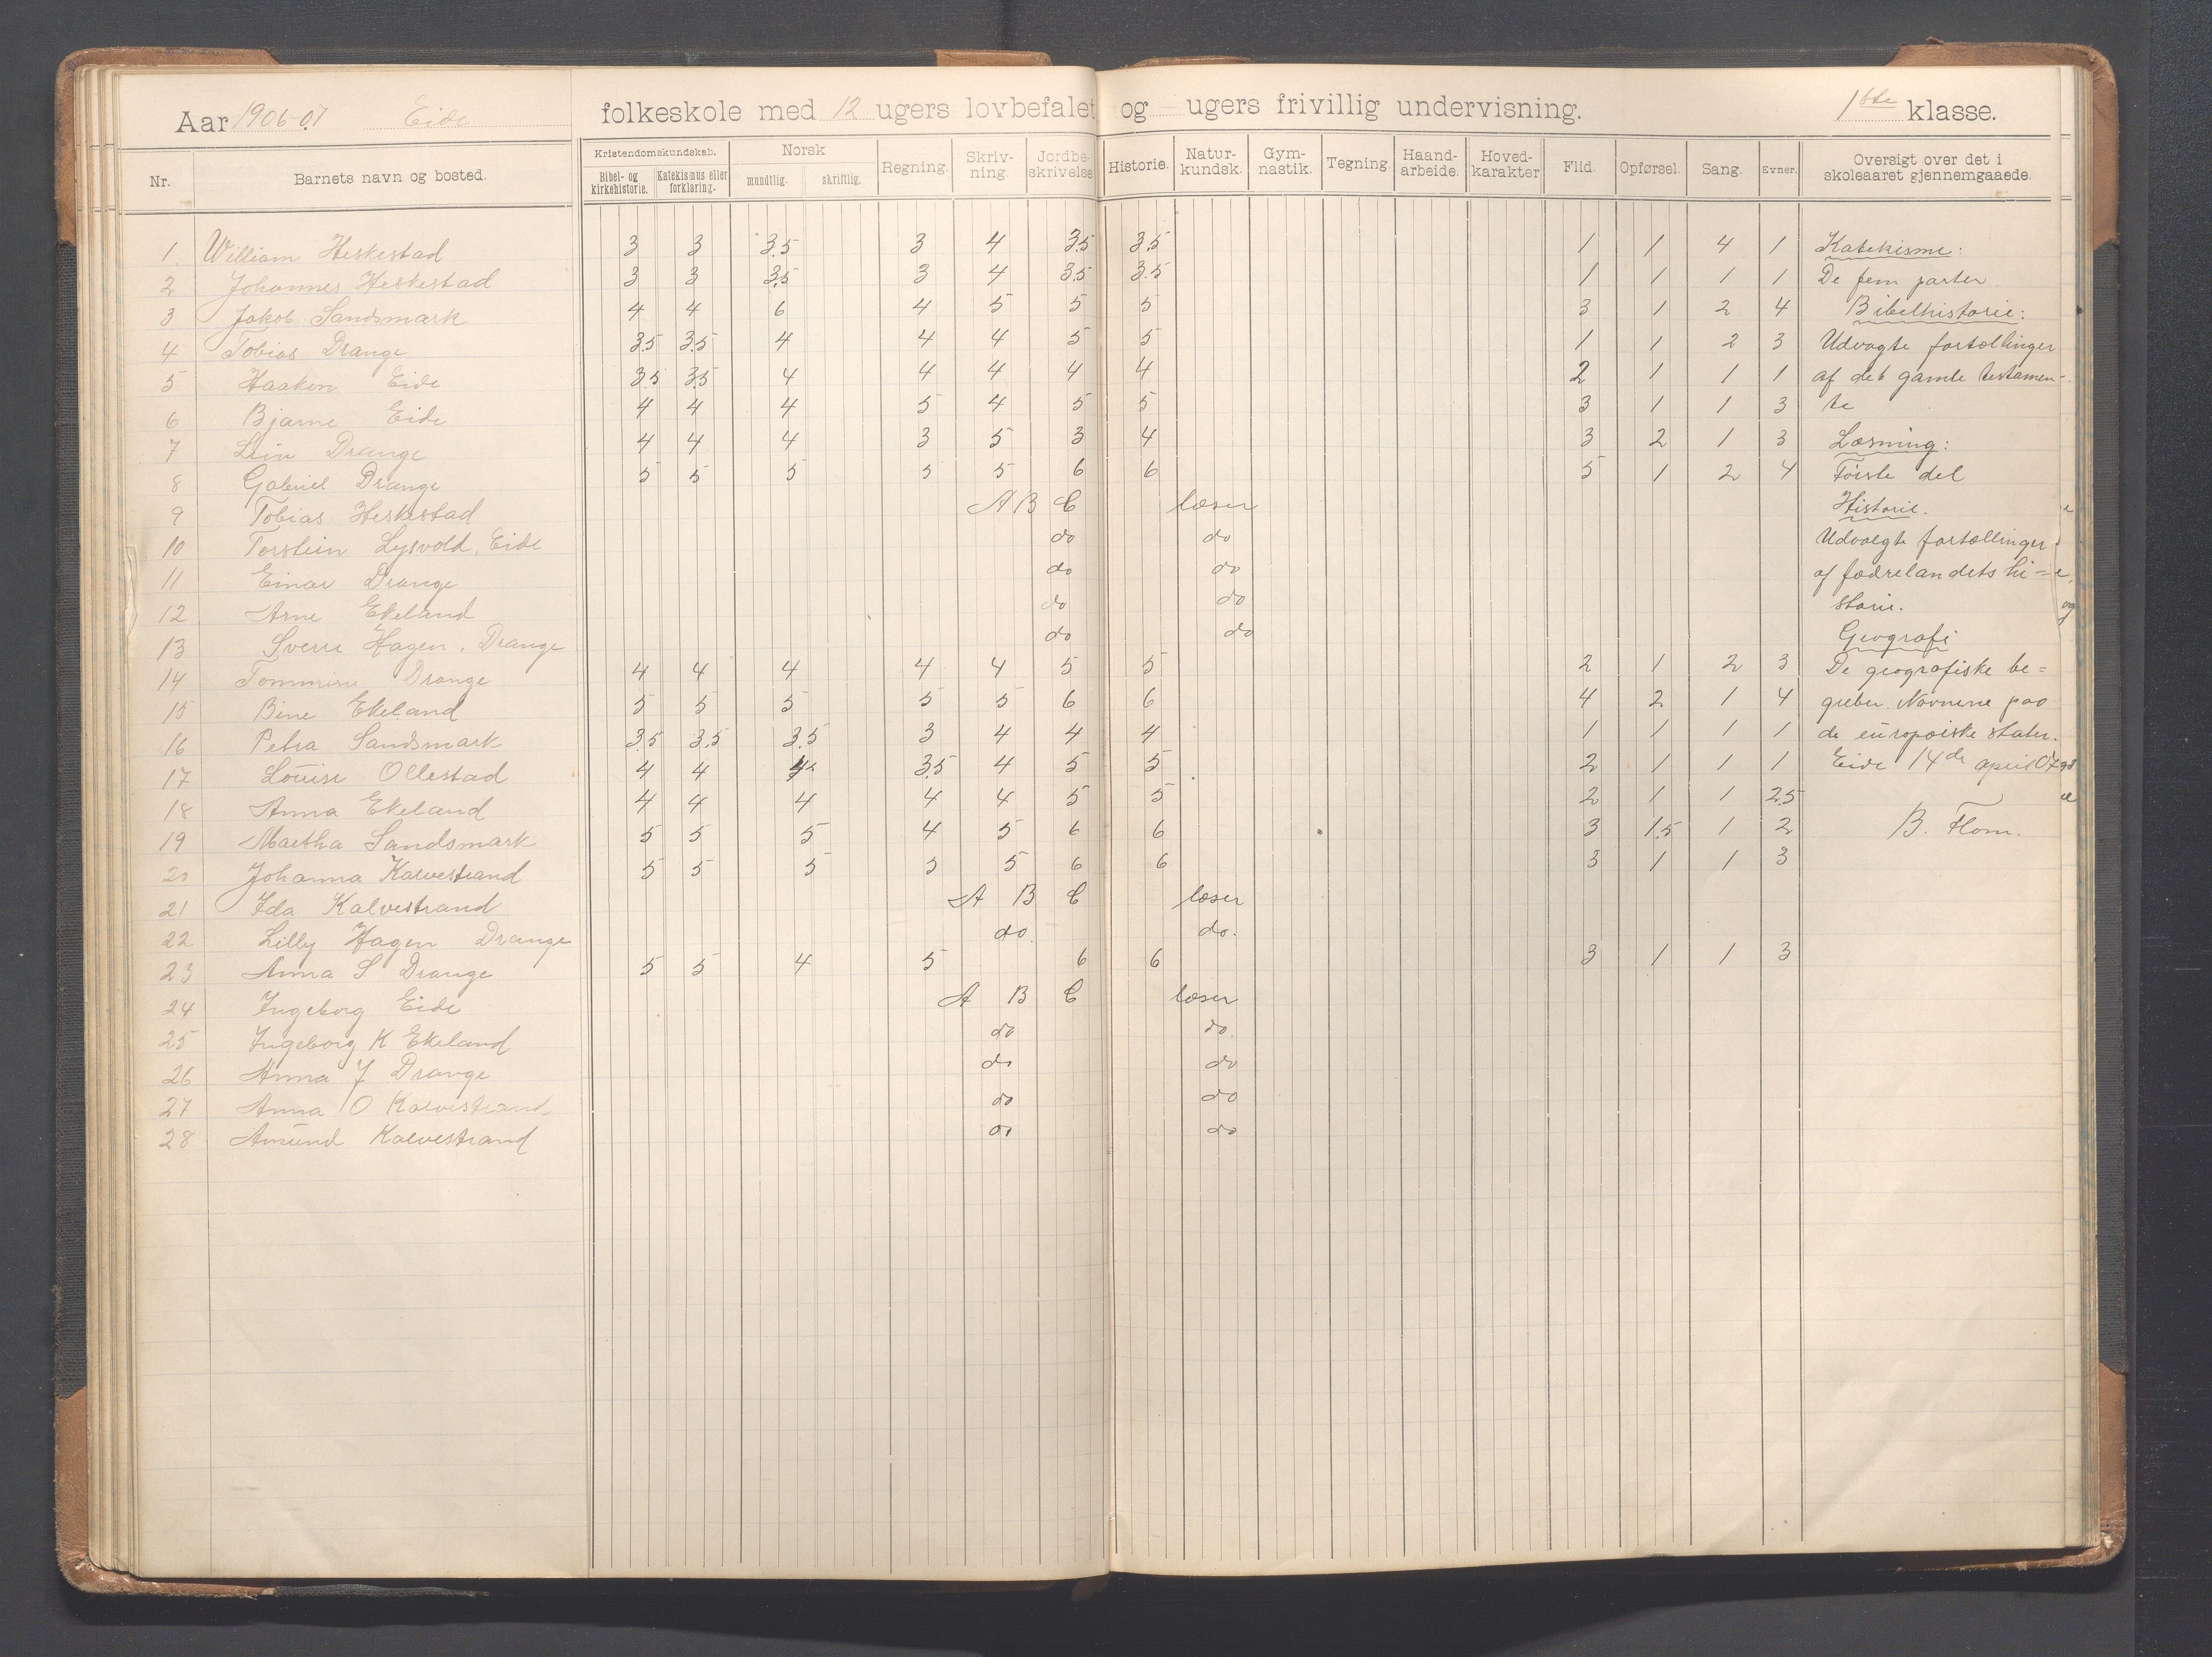 Aar 1906-07 Eide folkeskole med 12 ugers lovbefalet og - ugers frivillig undervisning. 1ste klasse.
Nr. Barnets navn og bosted. Kristendomskundskab. Bibel- og kirkehistorie. Katekismus eller forklaring. Norsk mundtlig. skriftlig. Regning. Skriv-ning. Jordbe-skrivelse Historie. Natur-kundsk. Gym-nastik. Tegning. Haand-arbeide. Hoved-karakter Flid. Opførsel. Sang. Evner. Oversigt over det i skoleaaret gjennemgaaede.
1. William Heskestad 3 3 3.5 3 4 3.5 3.5 1 1 4 1 Katekisme:
2 Johannes Heskestad 3 3 3.5 3 4 3.5 3.5 1 1 1 1 De fem parter
3 Jakob Sandsmark 4 4 6 4 5 5 5 3 1 2 4 Bibelhistorie:
4 Tobias Drange 3.5 3.5 4 4 4 5 5 1 1 2 3 Udvagte fortællinger
5 Haakon Eide 3.5 3.5 4 4 4 4 4 2 1 1 1 af det gamle testamen-
6 Bjarne Eide 4 4 4 5 4 5 5 3 1 1 3 te
7 Drange 4 4 4 3 5 3 4 3 2 1 3 Læsning:
8 Gabriel Drange 5 5 5 5 5 6 6 5 1 2 4 Første del
9 Tobias Heskestad A B C læser Historie.
10 Torstein Lysvold, Eide do do Udvalgte fortællinger
11 Einar Drange do do af fædrelandets hi-
12 Arne Ekeland do do storie.
13 Sverre Hagen, Drange do do Geografi
14 Tommine Drange 4 4 4 4 4 5 5 2 1 2 3 De geografiske be=
15 Bine Ekeland 5 5 5 5 5 6 6 4 2 1 4 greber. Navnene paa
16 Petra Sandsmark 3.5 3.5 3.5 3 4 4 4 1 1 1 1 de europæiske stater.
17 Louise Ollestad 4 4 4 3.5 4 5 5 2 1 1 1 Eide 14de april 07
18 Anna Ekeland 4 4 4 4 4 5 5 2 1 1 2.5
19 Maetha Sandsmark 5 5 5 4 5 6 6 3 1.5 1 2 B. Flom.
20 Johanna Kalvestrand 5 5 5 5 5 6 6 3 1 1 3
21 Ida Kalvestrand A B C læser
22 Lilly Hagen Drange do do.
23 Anna S Drange 5 5 4 5 6 6 3 1 1 3
24 Ingeborg Eide A B C læser
25 Ingeborg K Ekeland do do
26 Anna J Drange do do
27 Anna O Kalvestrand do do
28 Amund Kalvestrand do do